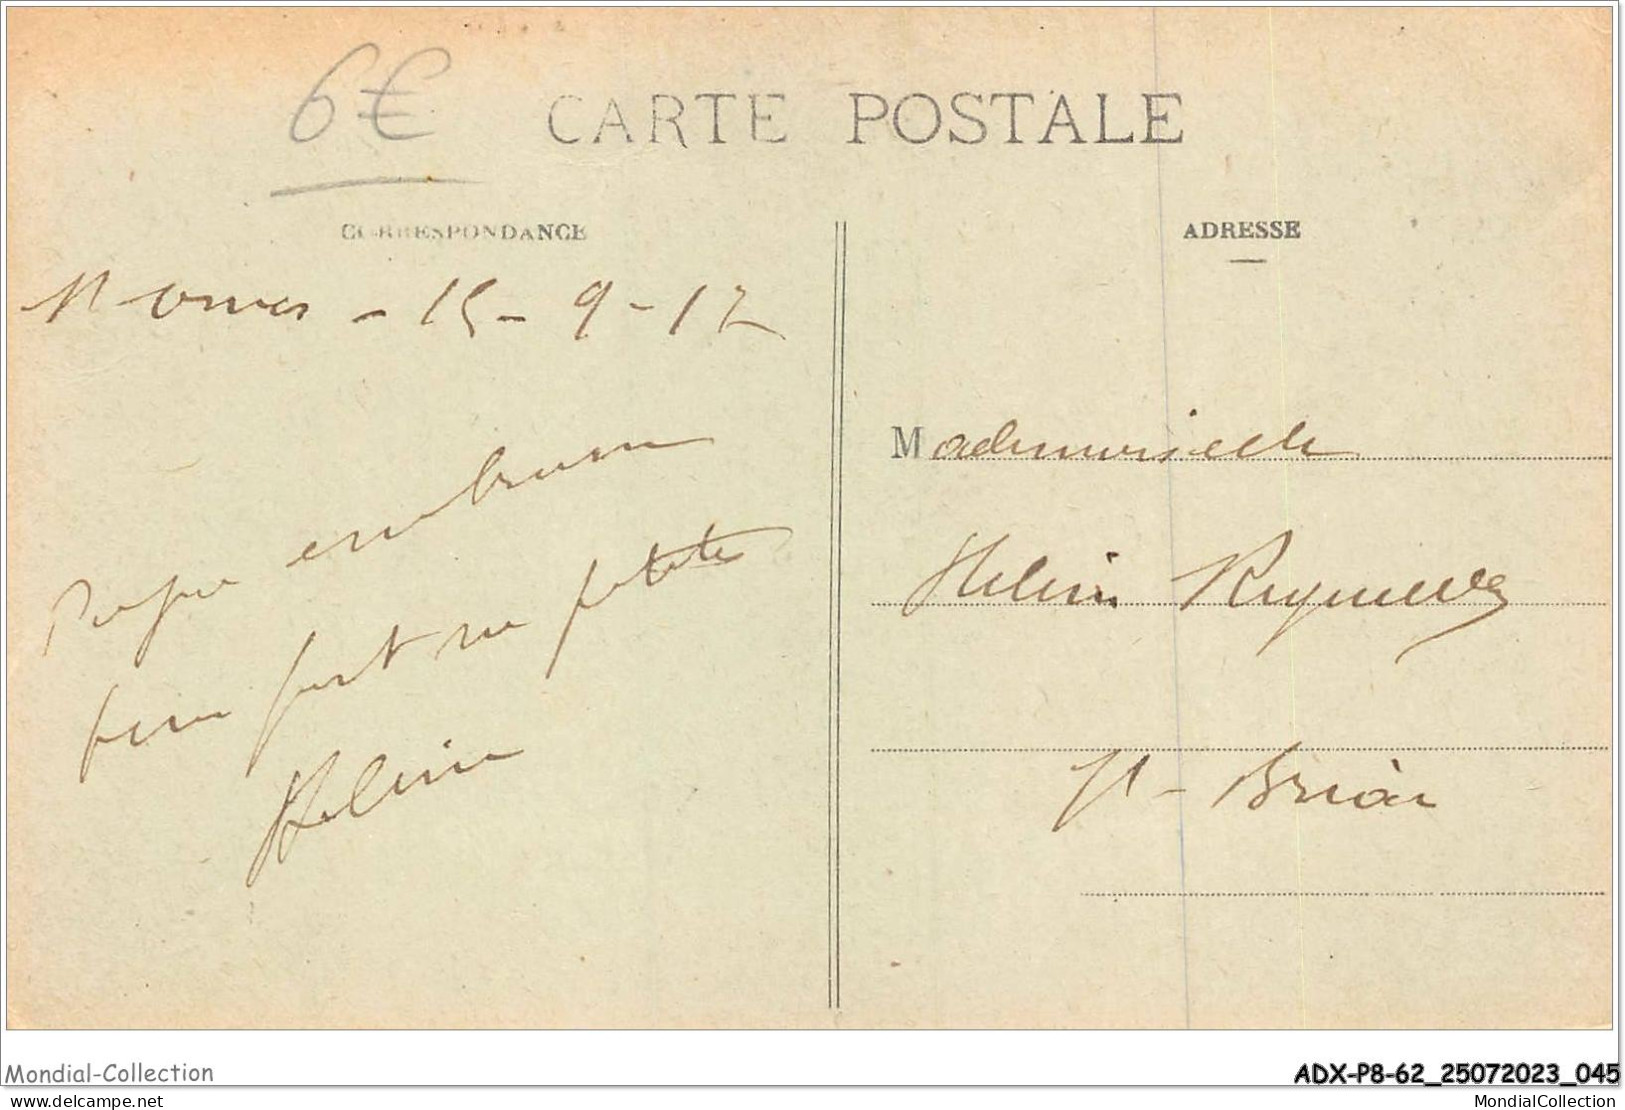 6€
CARTE POSTALE
CORRESPONDANCE
ADRESSE
15-9-12
Mademoiselle
Papa embrasse
bien fort sa petite
Hélène
Hélène
St-Briac
Mondial-Collection
ADX-P8-62_25072023_045
delcampe.net
MondialCollection